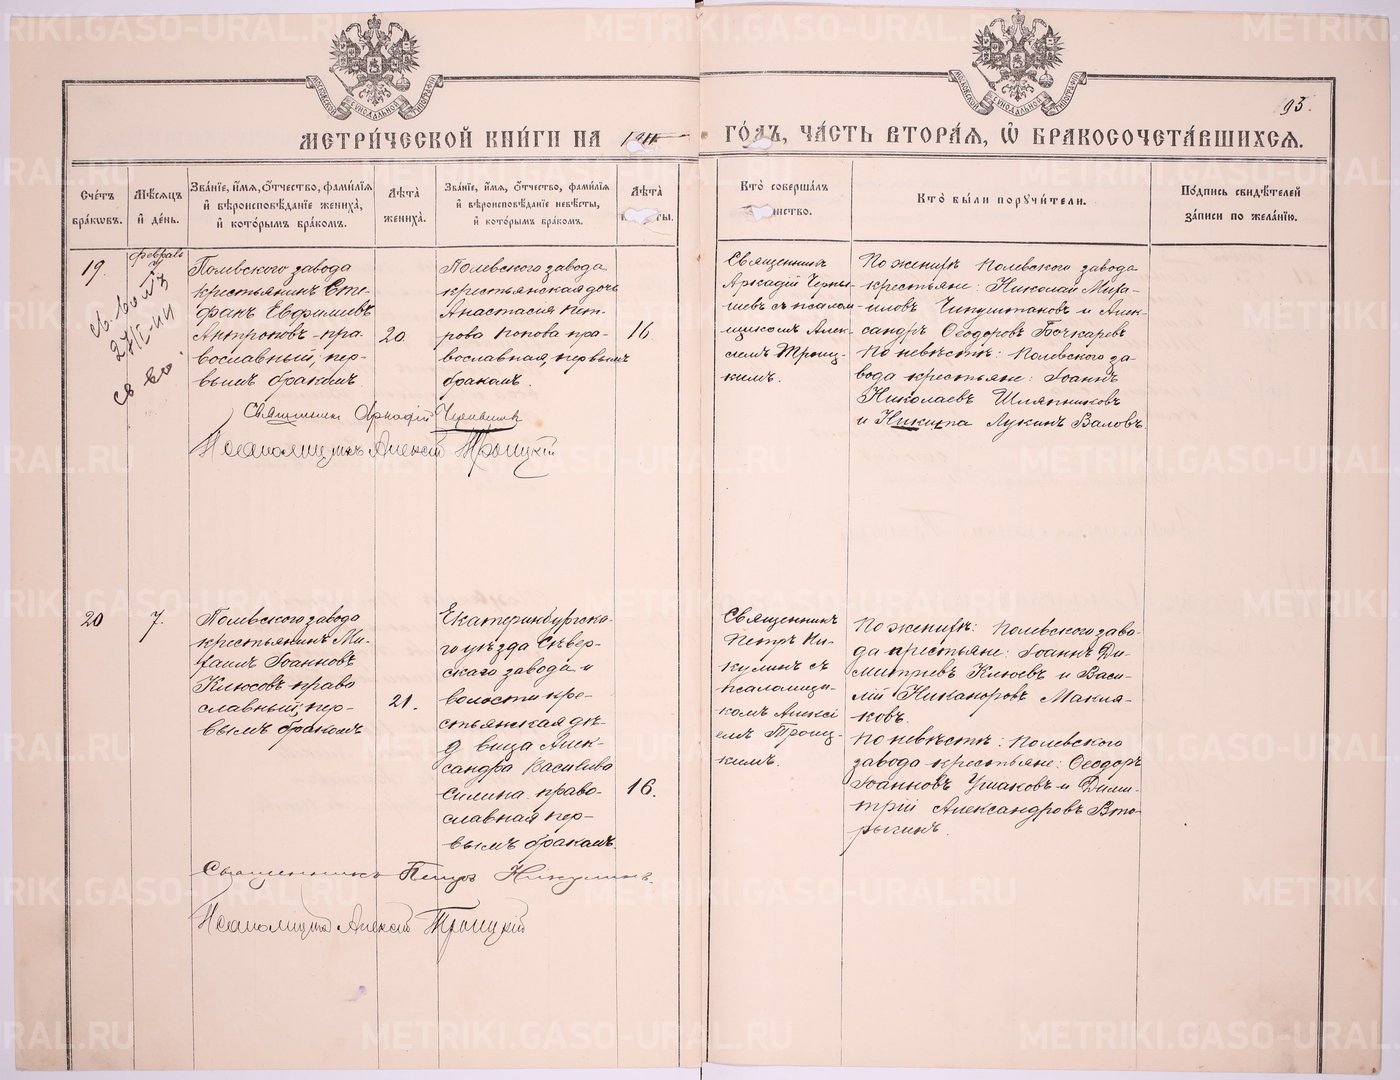 МЕТРИ́ЧЕСКОЙ КНИ́ГИ НА 1911
ГО́ДЪ, ЧА́СТЬ ВТОРА́Я, Ѡ҆ БРАКОСОЧЕТА́ВШИХСЯ.
93.
Сче́тъ бра́ковъ.
Мѣ́сяцъ и҆ де́нь.
Зва́нїе, и҆́мя, ѻ҆́тчество, фами́лїя и҆ вѣроисповѣ́данїе жениха̀, и҆ кото́рымъ бра́комъ.
Лѣ́та жениха̀.
Зва́нїе, и҆́мя, ѻ҆́тчество, фами́лїя и҆ вѣроисповѣ́данїе невѣ́сты, и҆ кото́рымъ бра́комъ.
Лѣ́та
Кто̀ соверша́лъ
Кто̀ бы́ли порꙋчи́тели.
По́дпись свидѣ́телей за́писи по жела́нїю.
19.
Февраль
27/I-411
Полевского завода
крестьянинъ Сте-
фанъ Евфимиевъ
Антроповъ пра-
вославный, пер-
вымъ бракомъ
20
Полевского завода
крестьянская дочь
Анастасия Пет-
рова Попова пра-
вославная, первымъ
бракомъ.
16
Священникъ
Аркадій Черны-
шевъ съ псалом-
щикомъ Алек-
сіемъ Троиц-
кимъ.
По женихѣ Полевского завода
крестьяне: Николай Миха-
иловъ Чипуштановъ и Алек-
сандръ Ѳеодоровъ Бочкаревъ
По невѣстѣ: Полевского за-
вода крестьяне: Іоаннъ
Николаевъ Шляпниковъ
и Никита Лукинъ Валовъ.
Священникъ Аркадій Чернышевъ
Псаломщикъ Алексій Троицкій
20
7.
Полевского завода
крестьянинъ Ми-
хаилъ Іоанновъ
Клюсовъ право
славный, пер-
вымъ бракомъ
21.
Екатеринбургска-
го уѣзда Сѣвер-
скаго завода и
волости кре-
стьянская дѣ-
вица Алек-
сандра Васильева
Силина право-
славная пер-
вымъ бракомъ.
16.
Священникъ
Петръ Ни-
кулинъ съ
псаломщи-
комъ Алексі
емъ Троиц-
кимъ.
По женихѣ: Полевского заво-
да крестьяне: Іоаннъ Ди-
митріевъ Клюевъ и Васи-
лій Никаноровъ Макля-
ковъ.
По невѣстѣ: Полевского
завода крестьяне: Ѳеодоръ
Іоанновъ Ушаковъ и Дими-
трій Александровъ Вто-
рыгинъ.
Священникъ Петръ Никулинъ.
Псаломщикъ Алексій Троицкій
METRIKI.GASO-URAL.RU